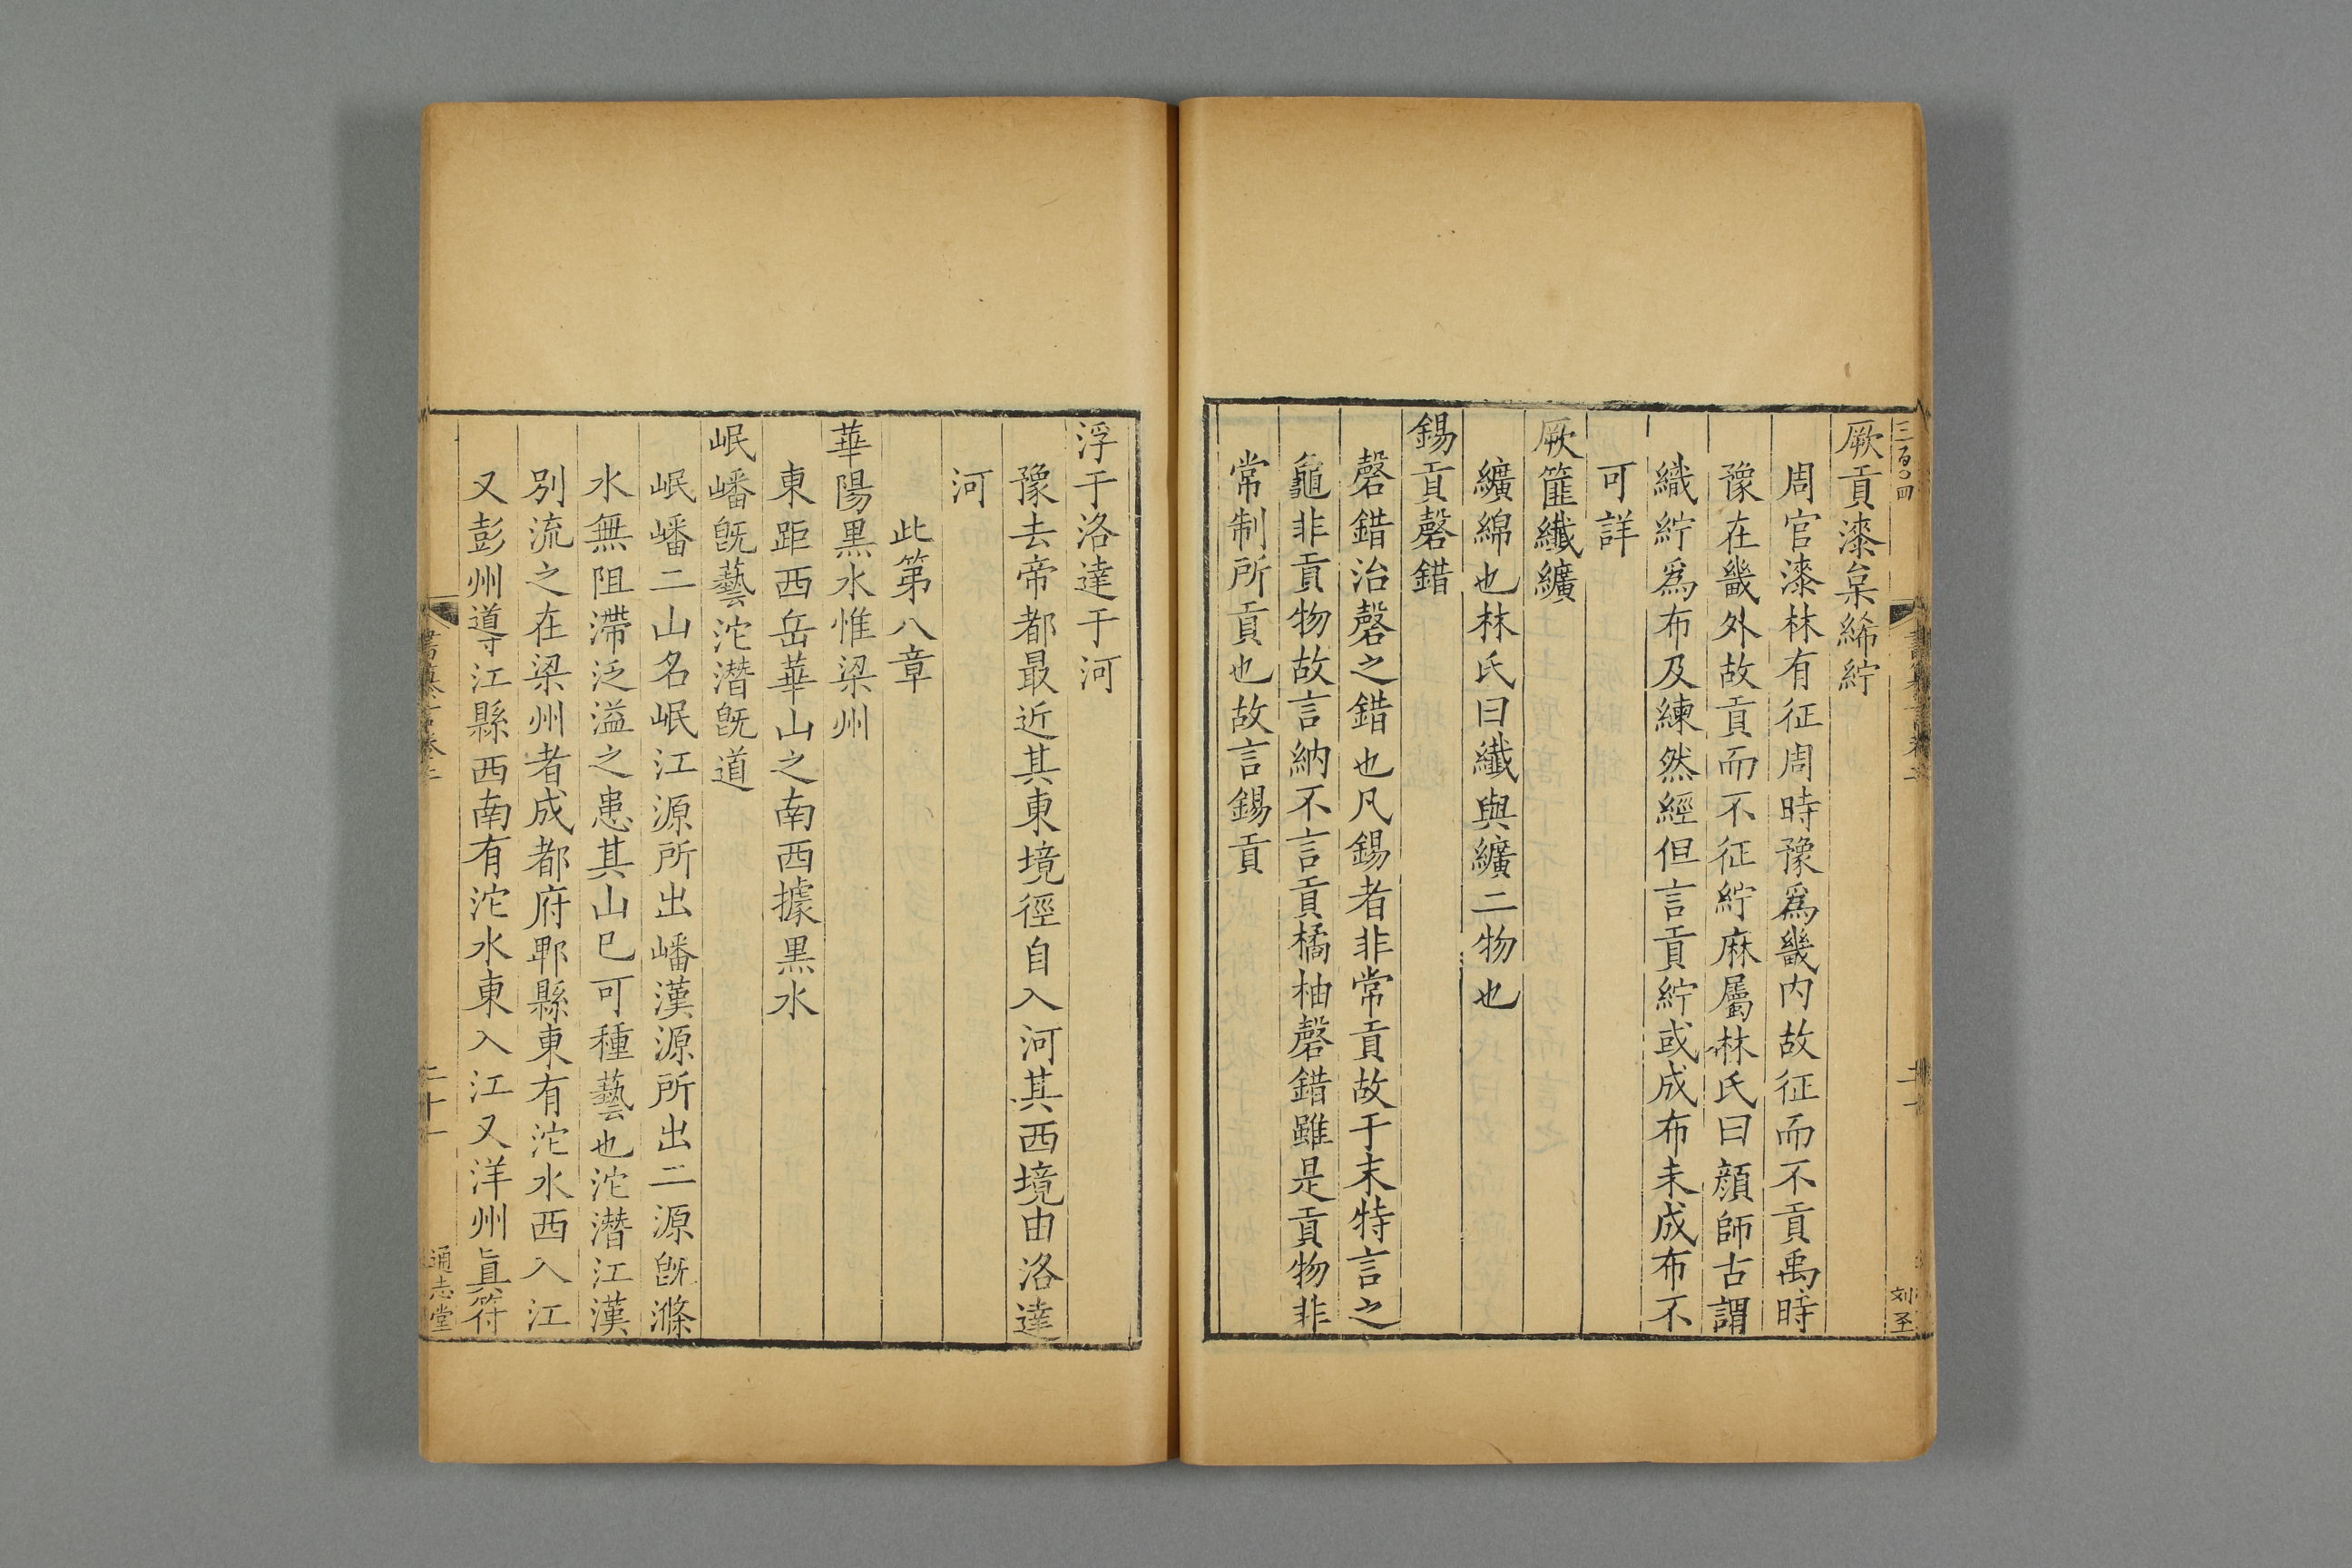 三百〇四
厥貢漆枲絺紵
周官漆林有征周時豫爲畿内故征而不貢禹時
豫在畿外故貢而不征紵麻屬林氏曰顔師古謂
織紵爲布及練然經但言貢紵或成布未成布不
可詳
厥篚纖纊
纊綿也林氏曰纖與纊二物也
錫貢磬錯
磬錯治磬之錯也凡錫者非常貢故于末特言之
龜非貢物故言納不言貢橘柚磬錯雖是貢物非
常制所貢也故言錫貢
浮于洛達于河
豫去帝都最近其東境徑自入河其西境由洛達
河
此第八章
華陽黑水惟梁州
東距西岳華山之南西據黑水
岷嶓旣藝沱潛旣道
岷嶓二山名岷江源所出嶓漢源所出二源旣滌
水無阻滯泛溢之患其山巳可種藝也沱潛江漢
別流之在梁州者成都府郫縣東有沱水西入江
又彭州導江縣西南有沱水東入江又洋州眞符
二十一
通志堂